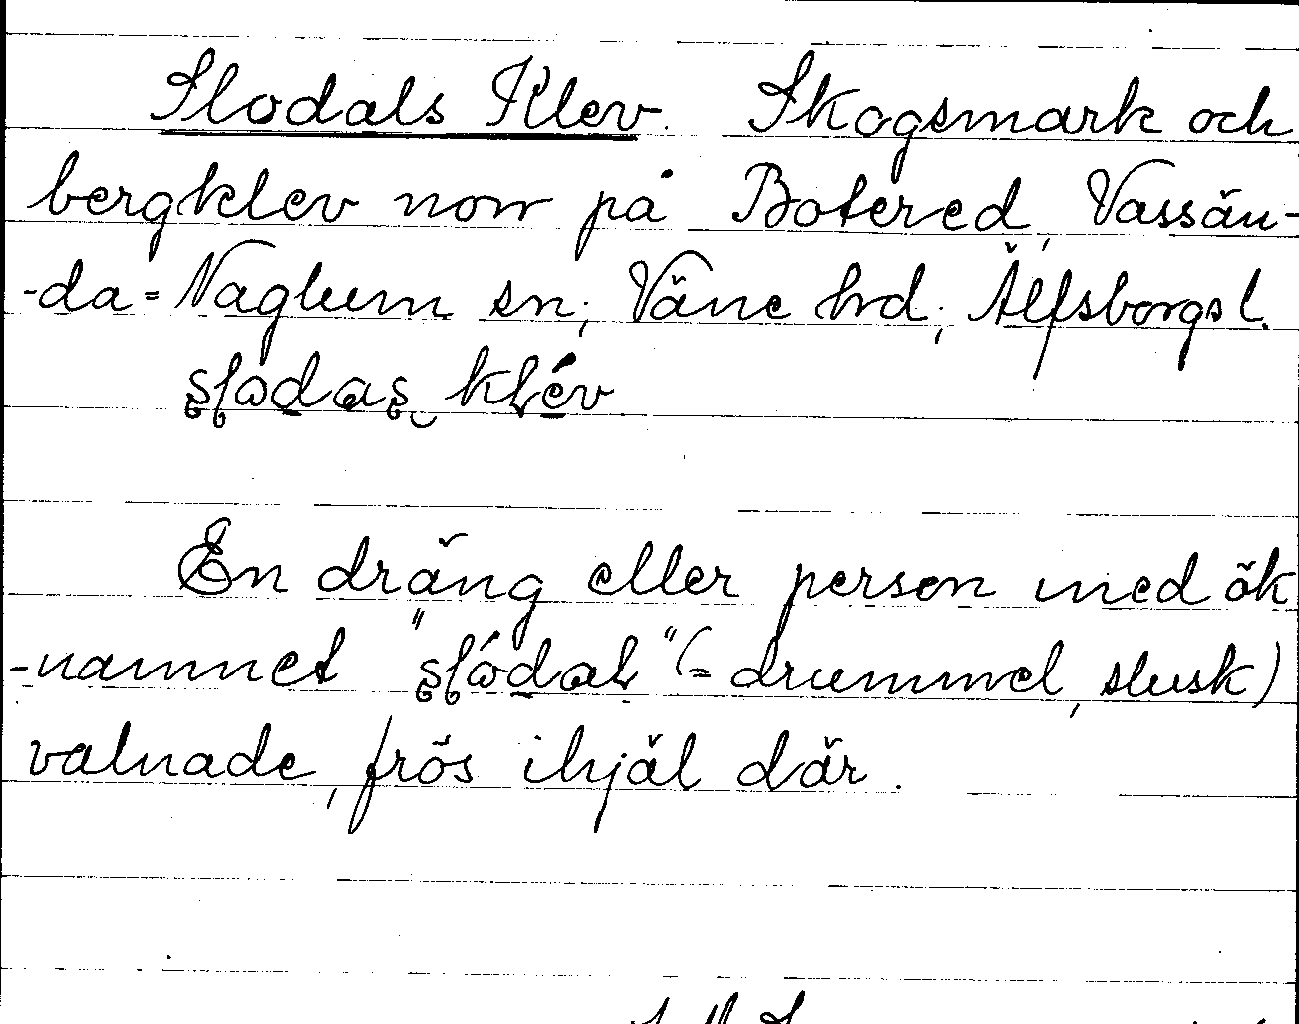 Slodals Klev. Skogsmark och
bergklev norr på Botered, Vassän-
-da=Naglum sn; Väne hrd; Älfsborgs l.
slodas klév
En dräng eller person med ök
-namnet "slódal" (= drummel, slusk)
valnade, frös ihjäl där.